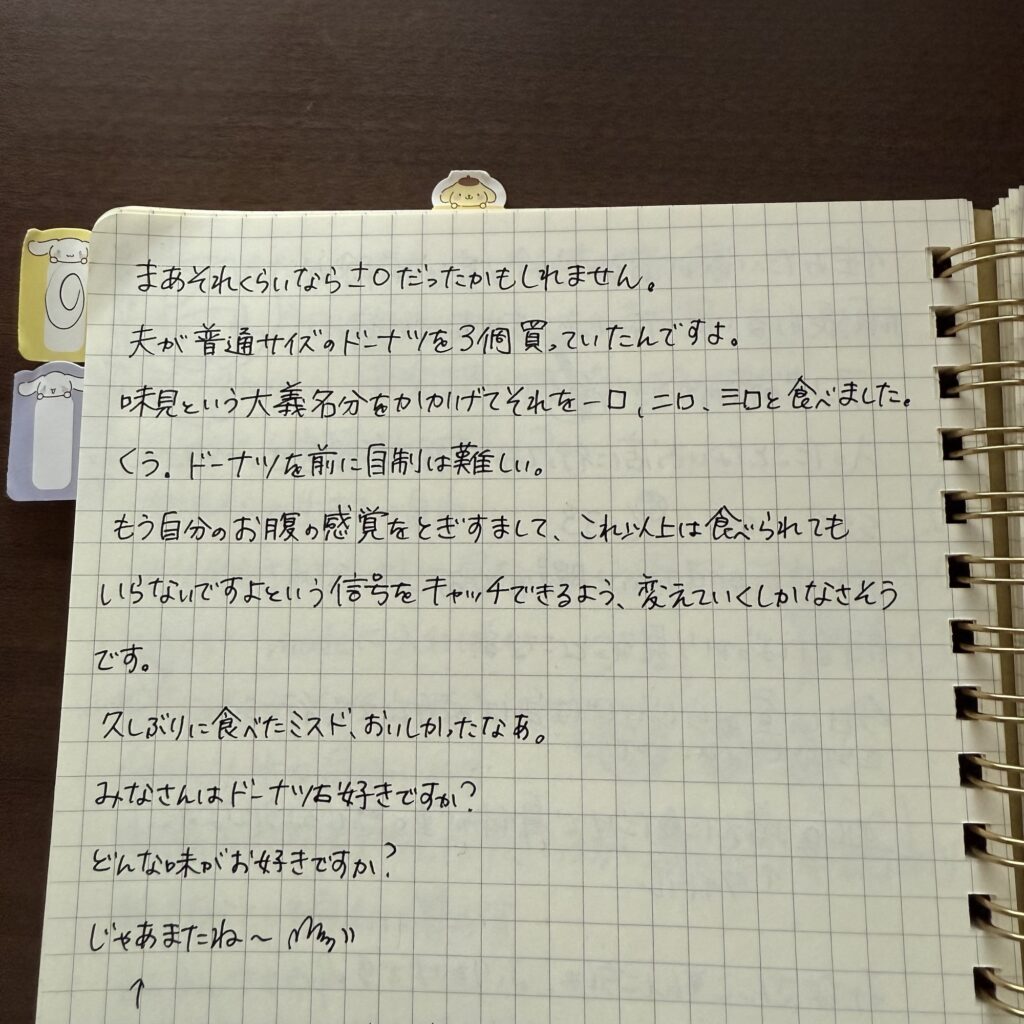 まあそれくらいなら±0だったかもしれません。
夫が普通サイズのドーナツを3個買っていたんですよ。
味見という大義名分をかかげてそれを一口、二口、三口と食べました。
くう。ドーナツを前に自制は難しい。
もう自分のお腹の感覚をとぎすまして、これ以上は食べられても
いらないですよという信号をキャッチできるよう、変えていくしかなさそう
です。
久しぶりに食べたミスド、おいしかったなぁ。
みなさんはドーナツお好きですか?
どんな味がお好きですか?
じゃあまたね〜
↑